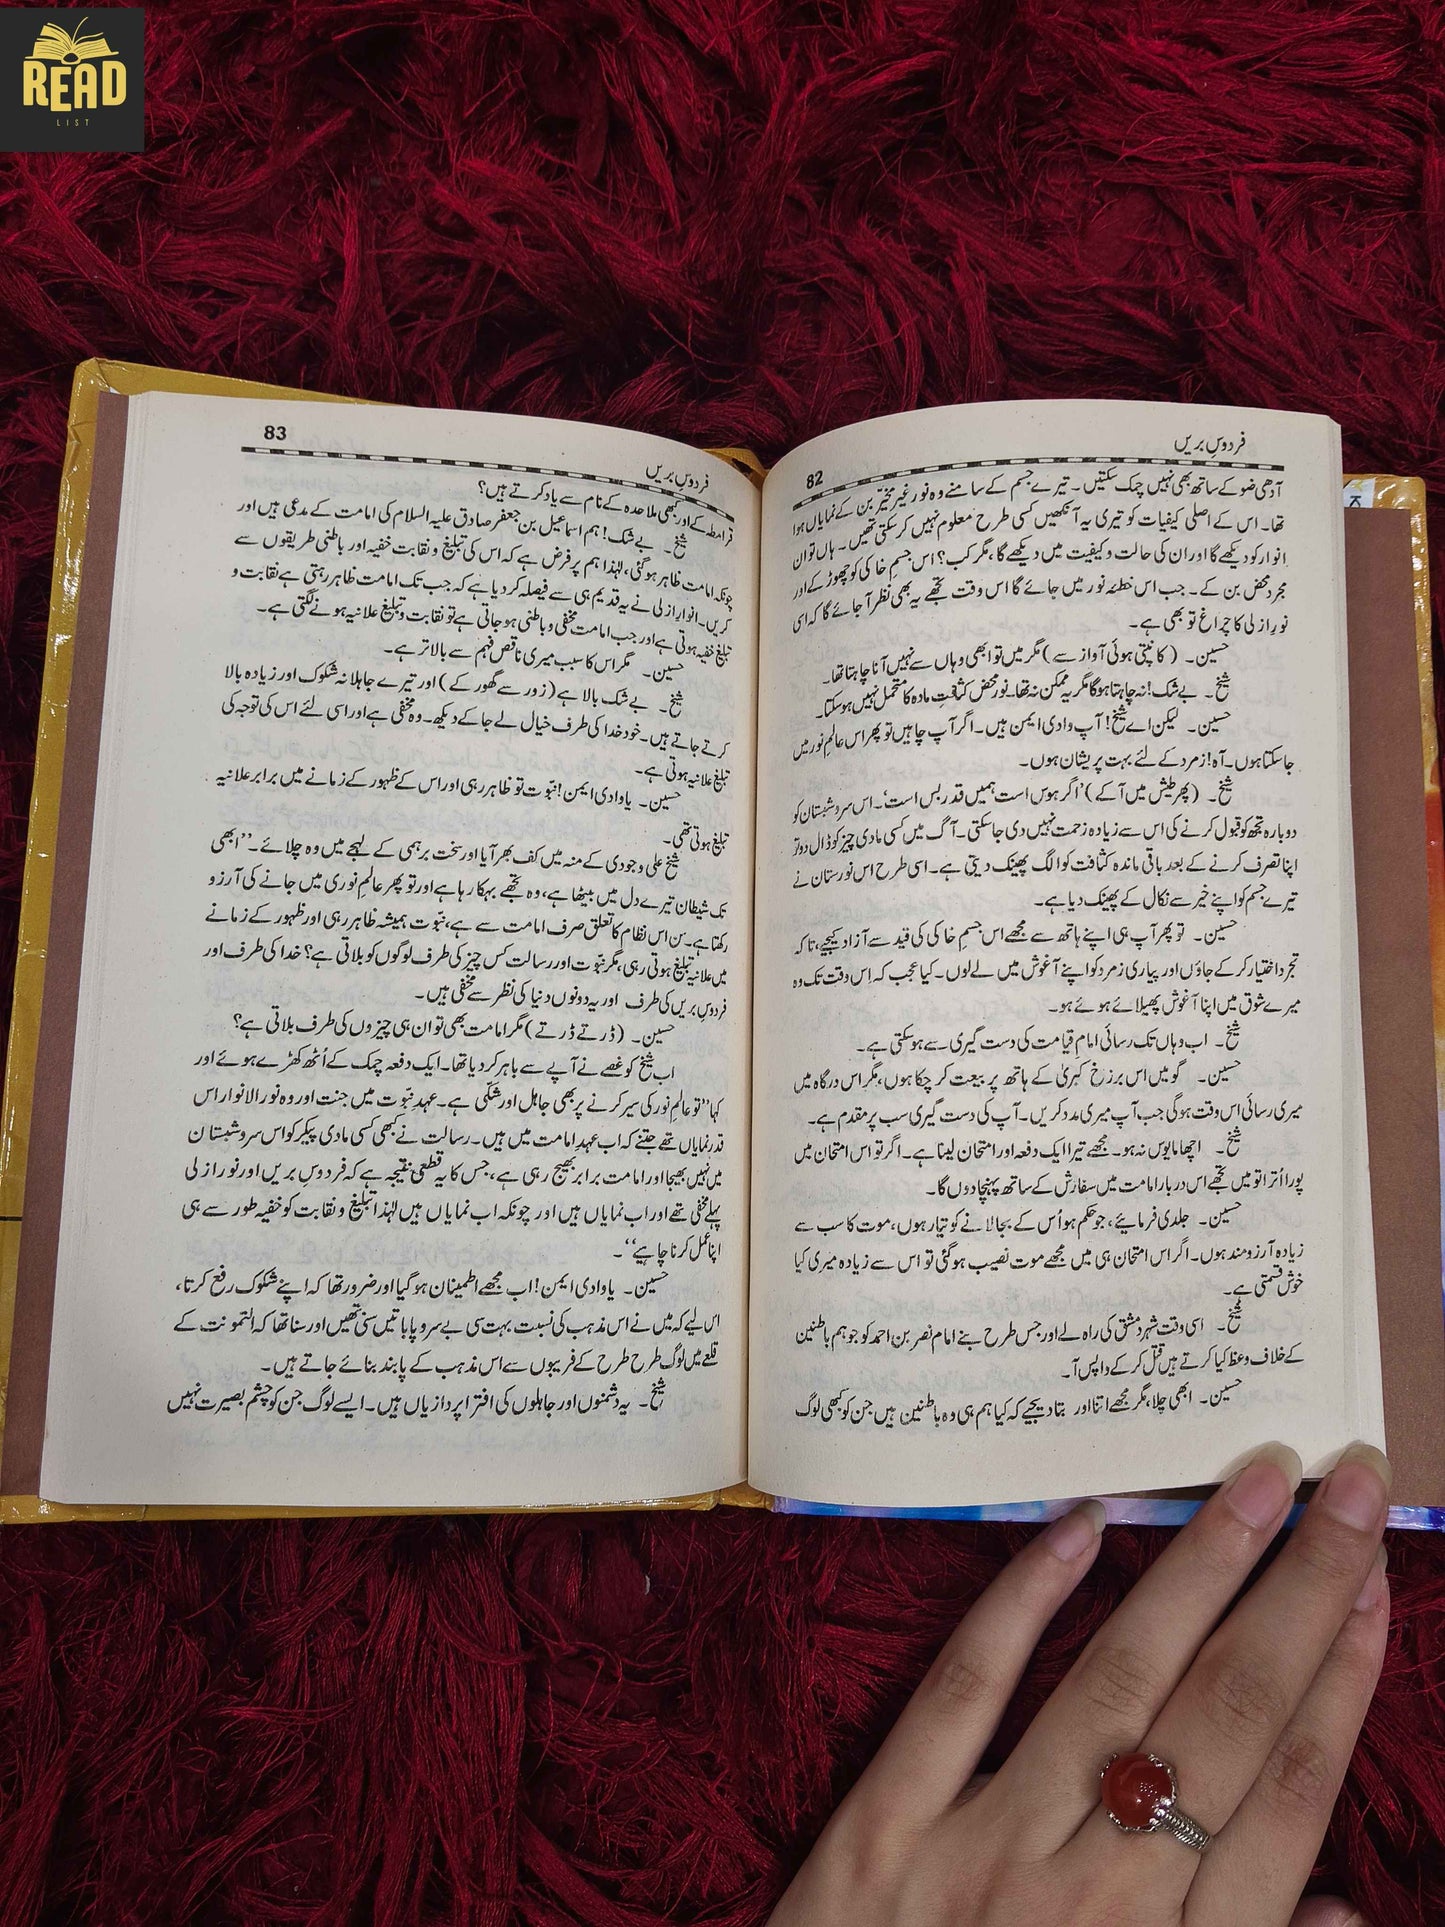 READ
LIST
فردوسِ بریں
82
آدھی ضو کے ساتھ بھی نہیں چمک سکتیں۔ تیرے جسم کے سامنے وہ نور غیر مخیّر بن کے نمایاں ہوا
تھا۔ اس کے اصلی کیفیات کو تیری یہ آنکھیں کسی طرح معلوم نہیں کر سکتی تھیں۔ ہاں تو ان
انوار کو دیکھے گا اور ان کی حالت و کیفیت میں دیکھے گا، مگر کب؟ اس جسم خاکی کو چھوڑ کے اور
مجرد محض بن کے۔ جب اس خطۂ نور میں جائے گا اس وقت تجھے یہ بھی نظر آ جائے گا کہ اسی
نورِ ازلی کا چراغ تو بھی ہے۔
حسین۔ (کانپتی ہوئی آواز سے) مگر میں تو ابھی وہاں سے نہیں آنا چاہتا تھا۔
شیخ۔ بے شک! نہ چاہتا ہوگا مگر یہ ممکن نہ تھا۔ نور محض کثافتِ مادہ کا متحمل نہیں ہو سکتا۔
حسین۔ لیکن اے شیخ! آپ وادی ایمن ہیں۔ اگر آپ چاہیں تو پھر اس عالمِ نور میں
جا سکتا ہوں۔ آہ! زمرد کے لئے بہت پریشان ہوں۔
شیخ۔ (پھر طیش میں آ کے) 'اگر ہوس است ہمیں قدر بس است'۔ اس سرو شبستان کو
دوبارہ تجھ کو قبول کرنے کی اس سے زیادہ زحمت نہیں دی جا سکتی۔ آگ میں کسی مادی چیز کو ڈال دو تو
اپنا تصرف کرنے کے بعد باقی ماندہ کثافت کو الگ پھینک دیتی ہے۔ اسی طرح اس نورستان نے
تیرے جسم کو اپنے خیر سے نکال کے پھینک دیا ہے۔
حسین۔ تو پھر آپ ہی اپنے ہاتھ سے مجھے اس جسم خاکی کی قید سے آزاد کیجیے، تا کہ
تجرد اختیار کر کے جاؤں اور پیاری زمرد کو اپنے آغوش میں لے لوں۔ کیا عجب کہ اس وقت تک وہ
میرے شوق میں اپنا آغوش پھیلائے ہوئے ہو۔
شیخ۔ اب وہاں تک رسائی امام قیامت کی دست گیری سے ہو سکتی ہے۔
حسین۔ گو میں اس برزخ کبریٰ کے ہاتھ پر بیعت کر چکا ہوں، مگر اس درگاہ میں
میری رسائی اس وقت ہوگی جب آپ میری مدد کریں۔ آپ کی دست گیری سب پر مقدم ہے۔
شیخ۔ اچھا مایوس نہ ہو۔ مجھے تیرا ایک دفعہ اور امتحان لینا ہے۔ اگر تو اس امتحان میں
پورا اُترا تو میں تجھے اس دربار امامت میں سفارش کے ساتھ پہنچا دوں گا۔
حسین۔ جلدی فرمائیے، جو حکم ہو اُس کے بجا لانے کو تیّار ہوں، موت کا سب سے
زیادہ آرزو مند ہوں۔ اگر اس امتحان ہی میں مجھے موت نصیب ہوگئی تو اس سے زیادہ میری کیا
خوش قسمتی ہے۔
شیخ۔ اسی وقت شہر دمشق کی راہ لے اور جس طرح بنے امام نصر بن احمد کو جو ہم باطنین
کے خلاف وعظ کیا کرتے ہیں قتل کر کے واپس آ۔
حسین۔ ابھی چلا، مگر مجھے اتنا اور بتا دیجیے کہ کیا ہم ہی وہ باطنین ہیں جن کو کبھی لوگ
83
فردوسِ بریں
قرامطہ کے اور کبھی ملاحدہ کے نام سے یاد کرتے ہیں؟
شیخ۔ بے شک! ہم اسماعیل بن جعفر صادق علیہ السلام کی امامت کے مدعی ہیں اور
چونکہ امامت ظاہر ہو گئی، لہٰذا ہم پر فرض ہے کہ اس کی تبلیغ و نقابت خفیہ اور باطنی طریقوں سے
کریں۔ انوارِ ازلی نے یہ قدیم ہی سے فیصلہ کر دیا ہے کہ جب تک امامت ظاہر رہتی ہے نقابت و
تبلیغ خفیہ ہوتی ہے اور جب امامت مخفی و باطنی ہو جاتی ہے تو نقابت و تبلیغ علانیہ ہونے لگتی ہے۔
حسین۔ مگر اس کا سبب میری ناقص فہم سے بالاتر ہے۔
شیخ۔ بے شک بالا ہے (زور سے گھور کے) اور تیرے جاہلانہ شکوک اور زیادہ بالا
کرتے جاتے ہیں۔ خود خدا کی طرف خیال لے جا کے دیکھ۔ وہ مخفی ہے اور اسی لئے اس کی توجہ کی
تبلیغ علانیہ ہوتی ہے۔
حسین۔ یا وادی ایمن! نبوّت تو ظاہر رہی اور اس کے ظہور کے زمانے میں برابر علانیہ
تبلیغ ہوتی تھی۔
شیخ علی وجودی کے منہ میں کف بھر آیا اور سخت برہمی کے لہجے میں وہ چلائے۔ ''ابھی
تک شیطان تیرے دل میں بیٹھا ہے، وہ تجھے بہکا رہا ہے اور تو پھر عالمِ نوری میں جانے کی آرزو
رکھتا ہے۔ سن اس نظام کا تعلق صرف امامت سے ہے، نبّوت ہمیشہ ظاہر رہی اور ظہور کے زمانے
میں علانیہ تبلیغ ہوتی رہی، مگر نبّوت اور رسالت کس چیز کی طرف لوگوں کو بلاتی ہے؟ خدا کی طرف اور
فردوسِ بریں کی طرف اور یہ دونوں دنیا کی نظر سے مخفی ہیں۔
حسین۔ (ڈرتے ڈرتے) مگر امامت بھی تو ان ہی چیزوں کی طرف بلاتی ہے؟
اب شیخ کو غصے نے آپے سے باہر کر دیا تھا۔ ایک دفعہ چمک کے اُٹھ کھڑے ہوئے اور
کہا ''تو عالمِ نور کی سیر کرنے پر بھی جاہل اور شکّی ہے۔ عہدِ نبّوت میں جنت اور وہ نورالانوار اس
قدر نمایاں تھے جتنے کہ اب عہدِ امامت میں ہیں۔ رسالت نے کبھی کسی مادی پیکر کو اس سرو شبستان
میں نہیں بھیجا اور امامت برابر بھیج رہی ہے، جس کا یہ قطعی نتیجہ ہے کہ فردوسِ بریں اور نور ازلی
پہلے مخفی تھے اور اب نمایاں ہیں اور چونکہ اب نمایاں ہیں لہٰذا تبلیغ و نقابت کو خفیہ طور سے ہی
اپنا عمل کرنا چاہیے''۔
حسین۔ یا وادی ایمن! اب مجھے اطمینان ہوگیا اور ضرور تھا کہ اپنے شکوک رفع کرتا،
اس لیے کہ میں نے اس مذہب کی نسبت بہت سی بے سروپا باتیں سنی تھیں اور سنا تھا کہ التمونت کے
قلعے میں لوگ طرح طرح کے فریبوں سے اس مذہب کے پابند بنائے جاتے ہیں۔
شیخ۔ یہ دشمنوں اور جاہلوں کی افترا پردازیاں ہیں۔ ایسے لوگ جن کو چشم بصیرت نہیں